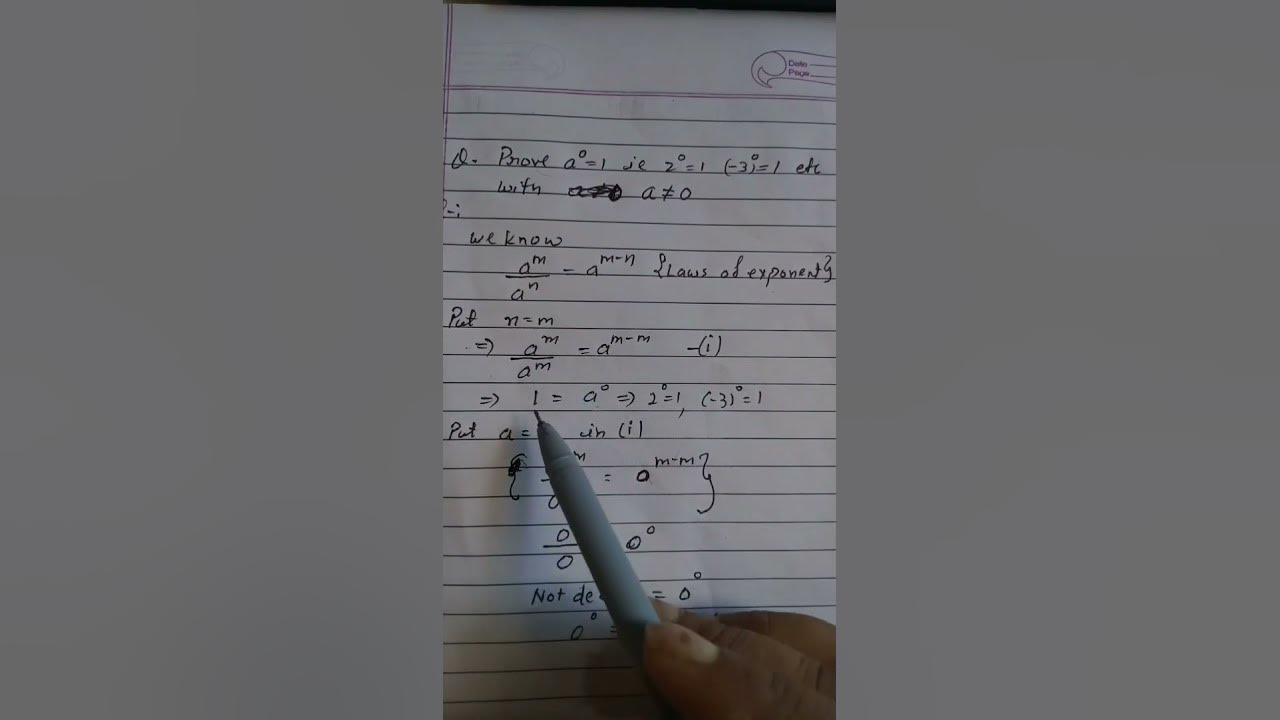 Date
Page
Q. Prove a⁰=1 ie 2⁰=1 (-3)⁰=1 etc
with a≠0
we know
a^m/a^n = a^(m-n) {Laws of exponent}
Put n=m
=> a^m/a^m = a^(m-m) -(i)
=> 1 = a⁰ => 2⁰=1, (-3)⁰=1
Put a= in (i)
{ = 0^(m-m)}
0/0 0⁰
Not = 0⁰
0⁰ =